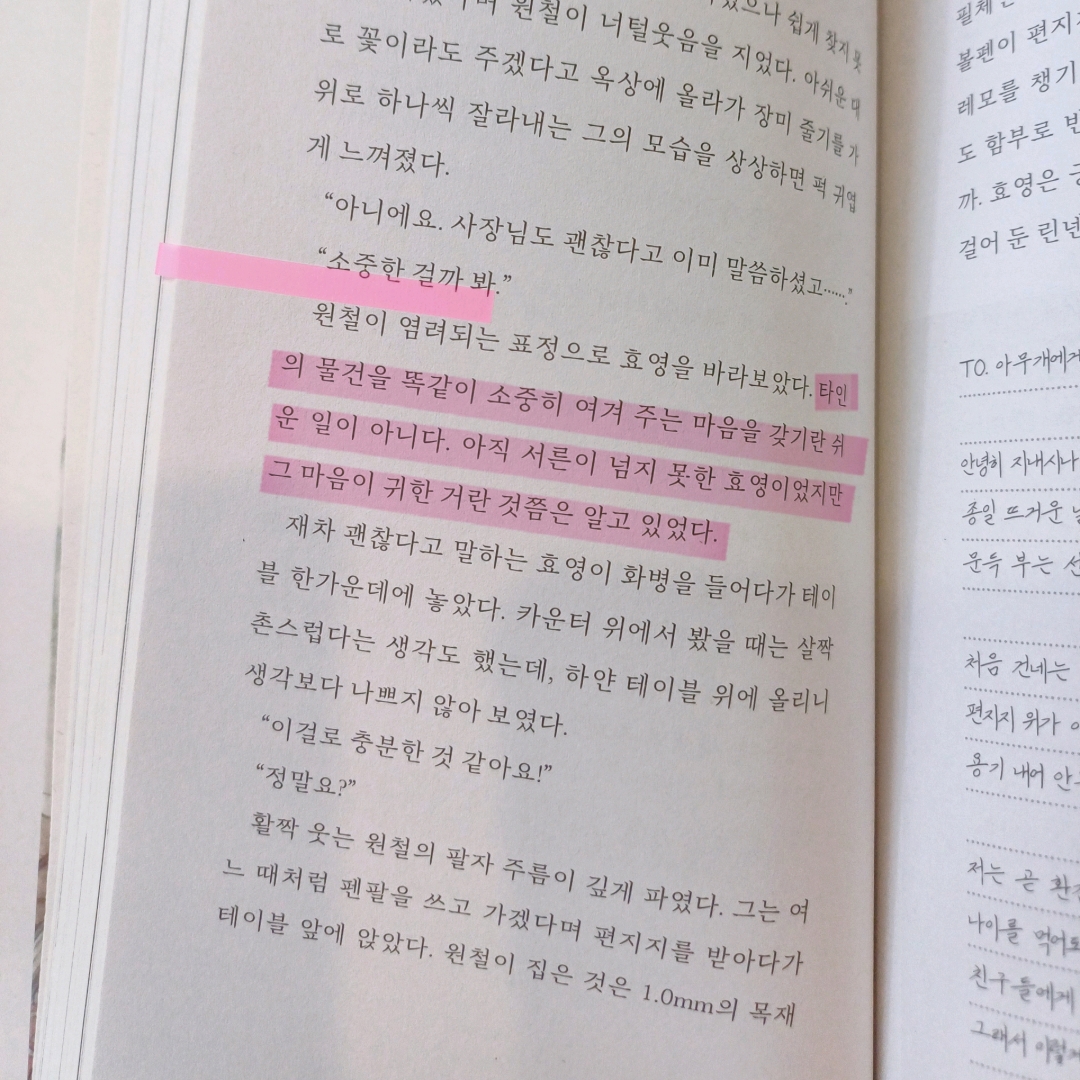 원철이 너털웃음을 지었다. 아쉬운 대
로 꽃이라도 주겠다고 옥상에 올라가 장미 줄기를 가
위로 하나씩 잘라내는 그의 모습을 상상하면 퍽 귀엽
게 느껴졌다.
“아니에요. 사장님도 괜찮다고 이미 말씀하셨고…….”
“소중한 걸까 봐.”
원철이 염려되는 표정으로 효영을 바라보았다. 타인
의 물건을 똑같이 소중히 여겨 주는 마음을 갖기란 쉬
운 일이 아니다. 아직 서른이 넘지 못한 효영이었지만
그 마음이 귀한 거란 것쯤은 알고 있었다.
재차 괜찮다고 말하는 효영이 화병을 들어다가 테이
블 한가운데에 놓았다. 카운터 위에서 봤을 때는 살짝
촌스럽다는 생각도 했는데, 하얀 테이블 위에 올리니
생각보다 나쁘지 않아 보였다.
“이걸로 충분한 것 같아요!”
“정말요?”
활짝 웃는 원철의 팔자 주름이 깊게 파였다. 그는 여
느 때처럼 펜팔을 쓰고 가겠다며 편지지를 받아다가
테이블 앞에 앉았다. 원철이 집은 것은 1.0mm의 목재
필체
볼펜이
레모를 챙기
도 함부로
까. 효영은
걸어 둔 린넨
TO. 아무개에게
안녕히 지내시나
종일 뜨거운
문득 부는
처음 건네는
편지지 위가
용기 내어
저는 곧
나이를 먹어도
친구들에게
그래서 이렇게